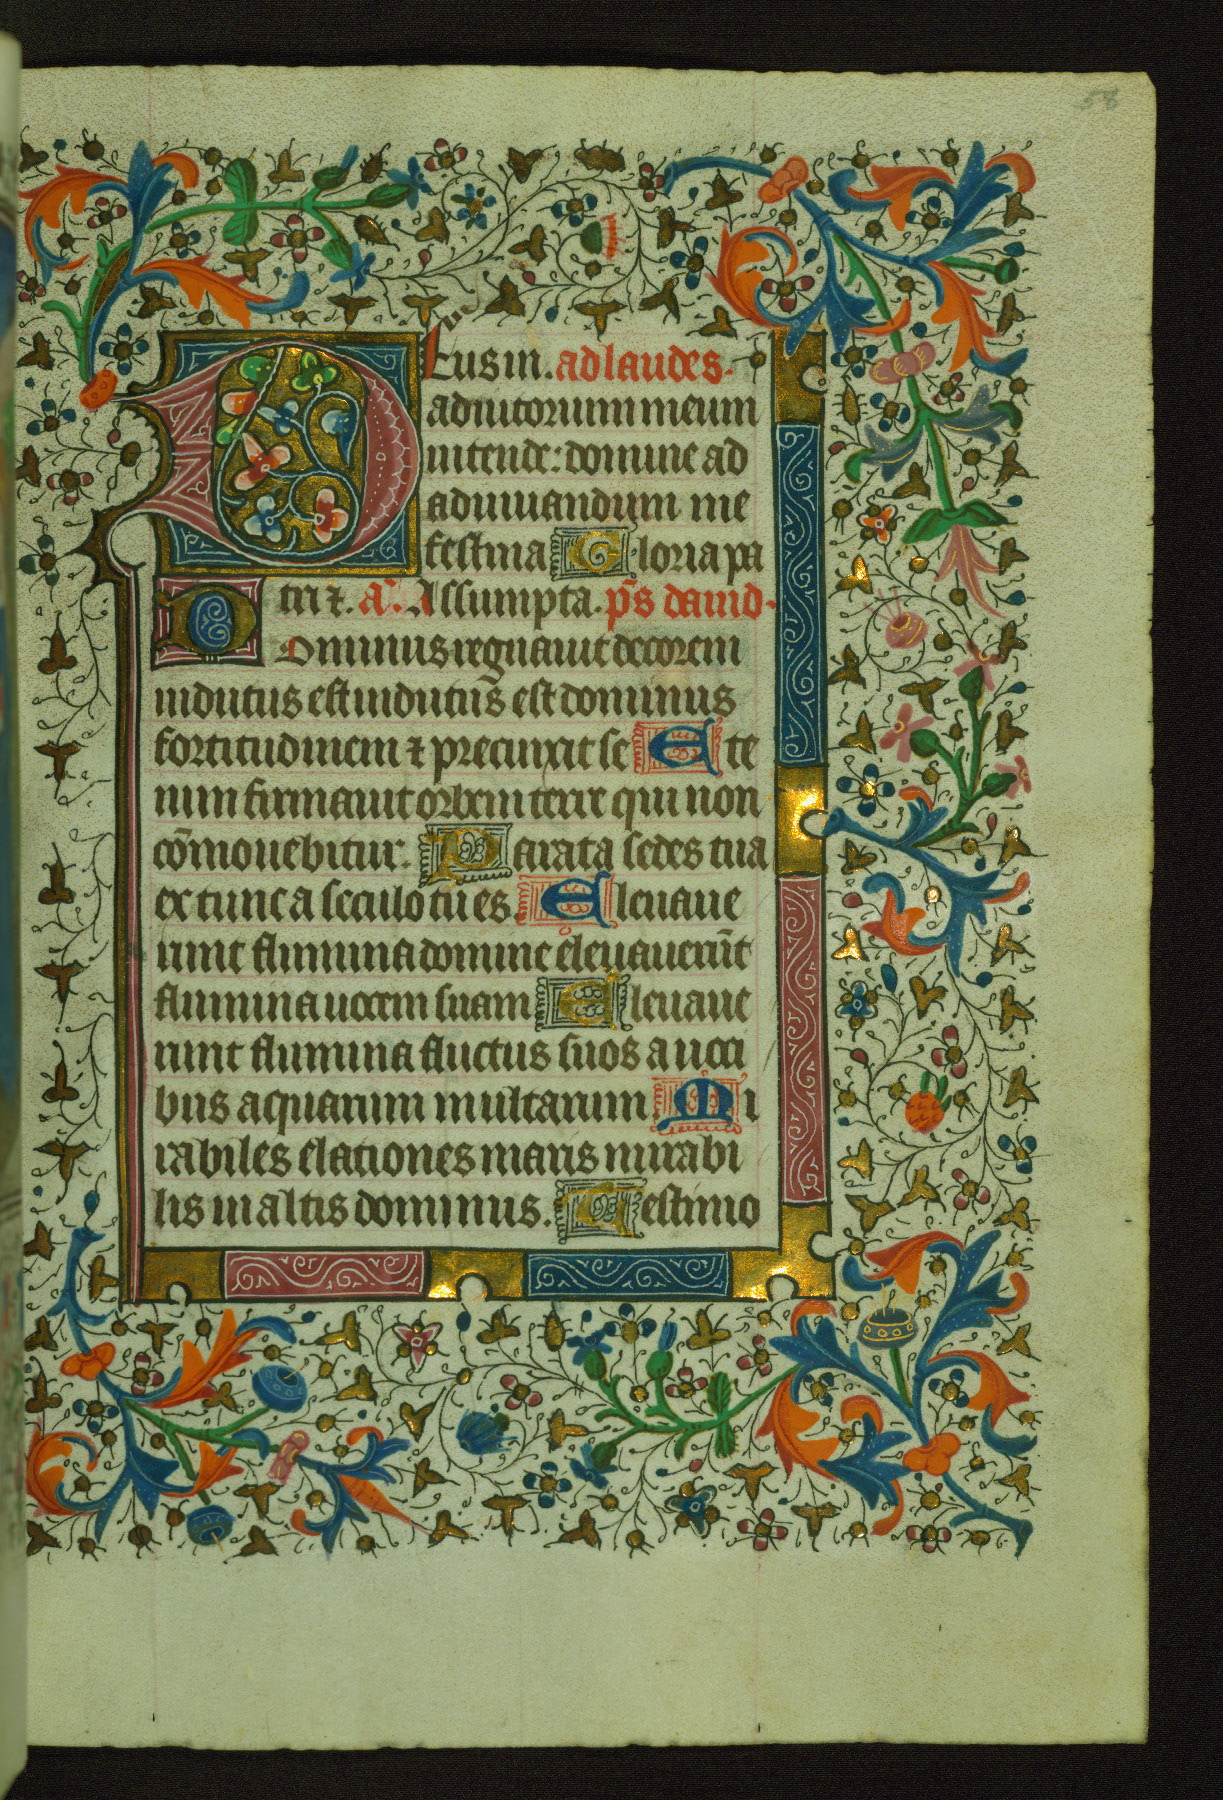 58
Deus in. ad laudes.
adiutorium meum
intende: domine ad
adiuuandum me
festina Gloria pa
tri ⁊. a͞. Assumpta. p̄s dauid.
Dominus regnauit decorem
indutus est indutus est dominus
fortitudinem ⁊ precinxit se Ete
nim firmauit orbem terre qui non
cōmouebitur. Parata sedes tua
ex tunc a seculo tu es. Eleuaue
runt flumina domine eleuauerūt
flumina uocem suam Eleuaue
runt flumina fluctus suos a uoci
bus aquarum multarum Mi
rabiles elationes maris mirabi
lis in altis dominus. Testimo